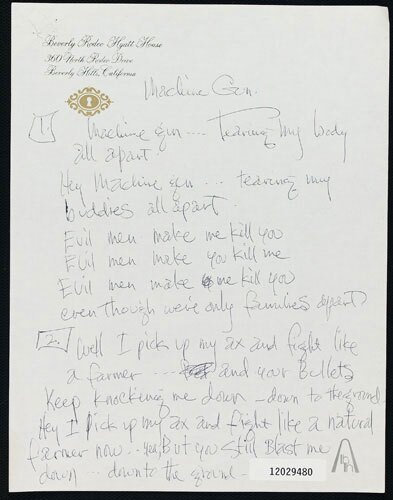 Beverly Rodeo Hyatt House
360 North Rodeo Drive
Beverly Hills, California
Machine Gun.
1. Machine gun .... Tearing My body
all apart.
Hey Machine gun ... tearing my
buddies all apart.
Evil men make me kill you
Evil men make you kill me
Evil men make me kill you
even though we're only families apart
2. Well I pick up my ax and fight like
a farmer ---- and your Bullets
Keep Knocking me down - down to the ground
Hey I pick up my ax and fight like a natural
farmer now .. yea, But you Still Blast me
down ... down to the ground -
12029480